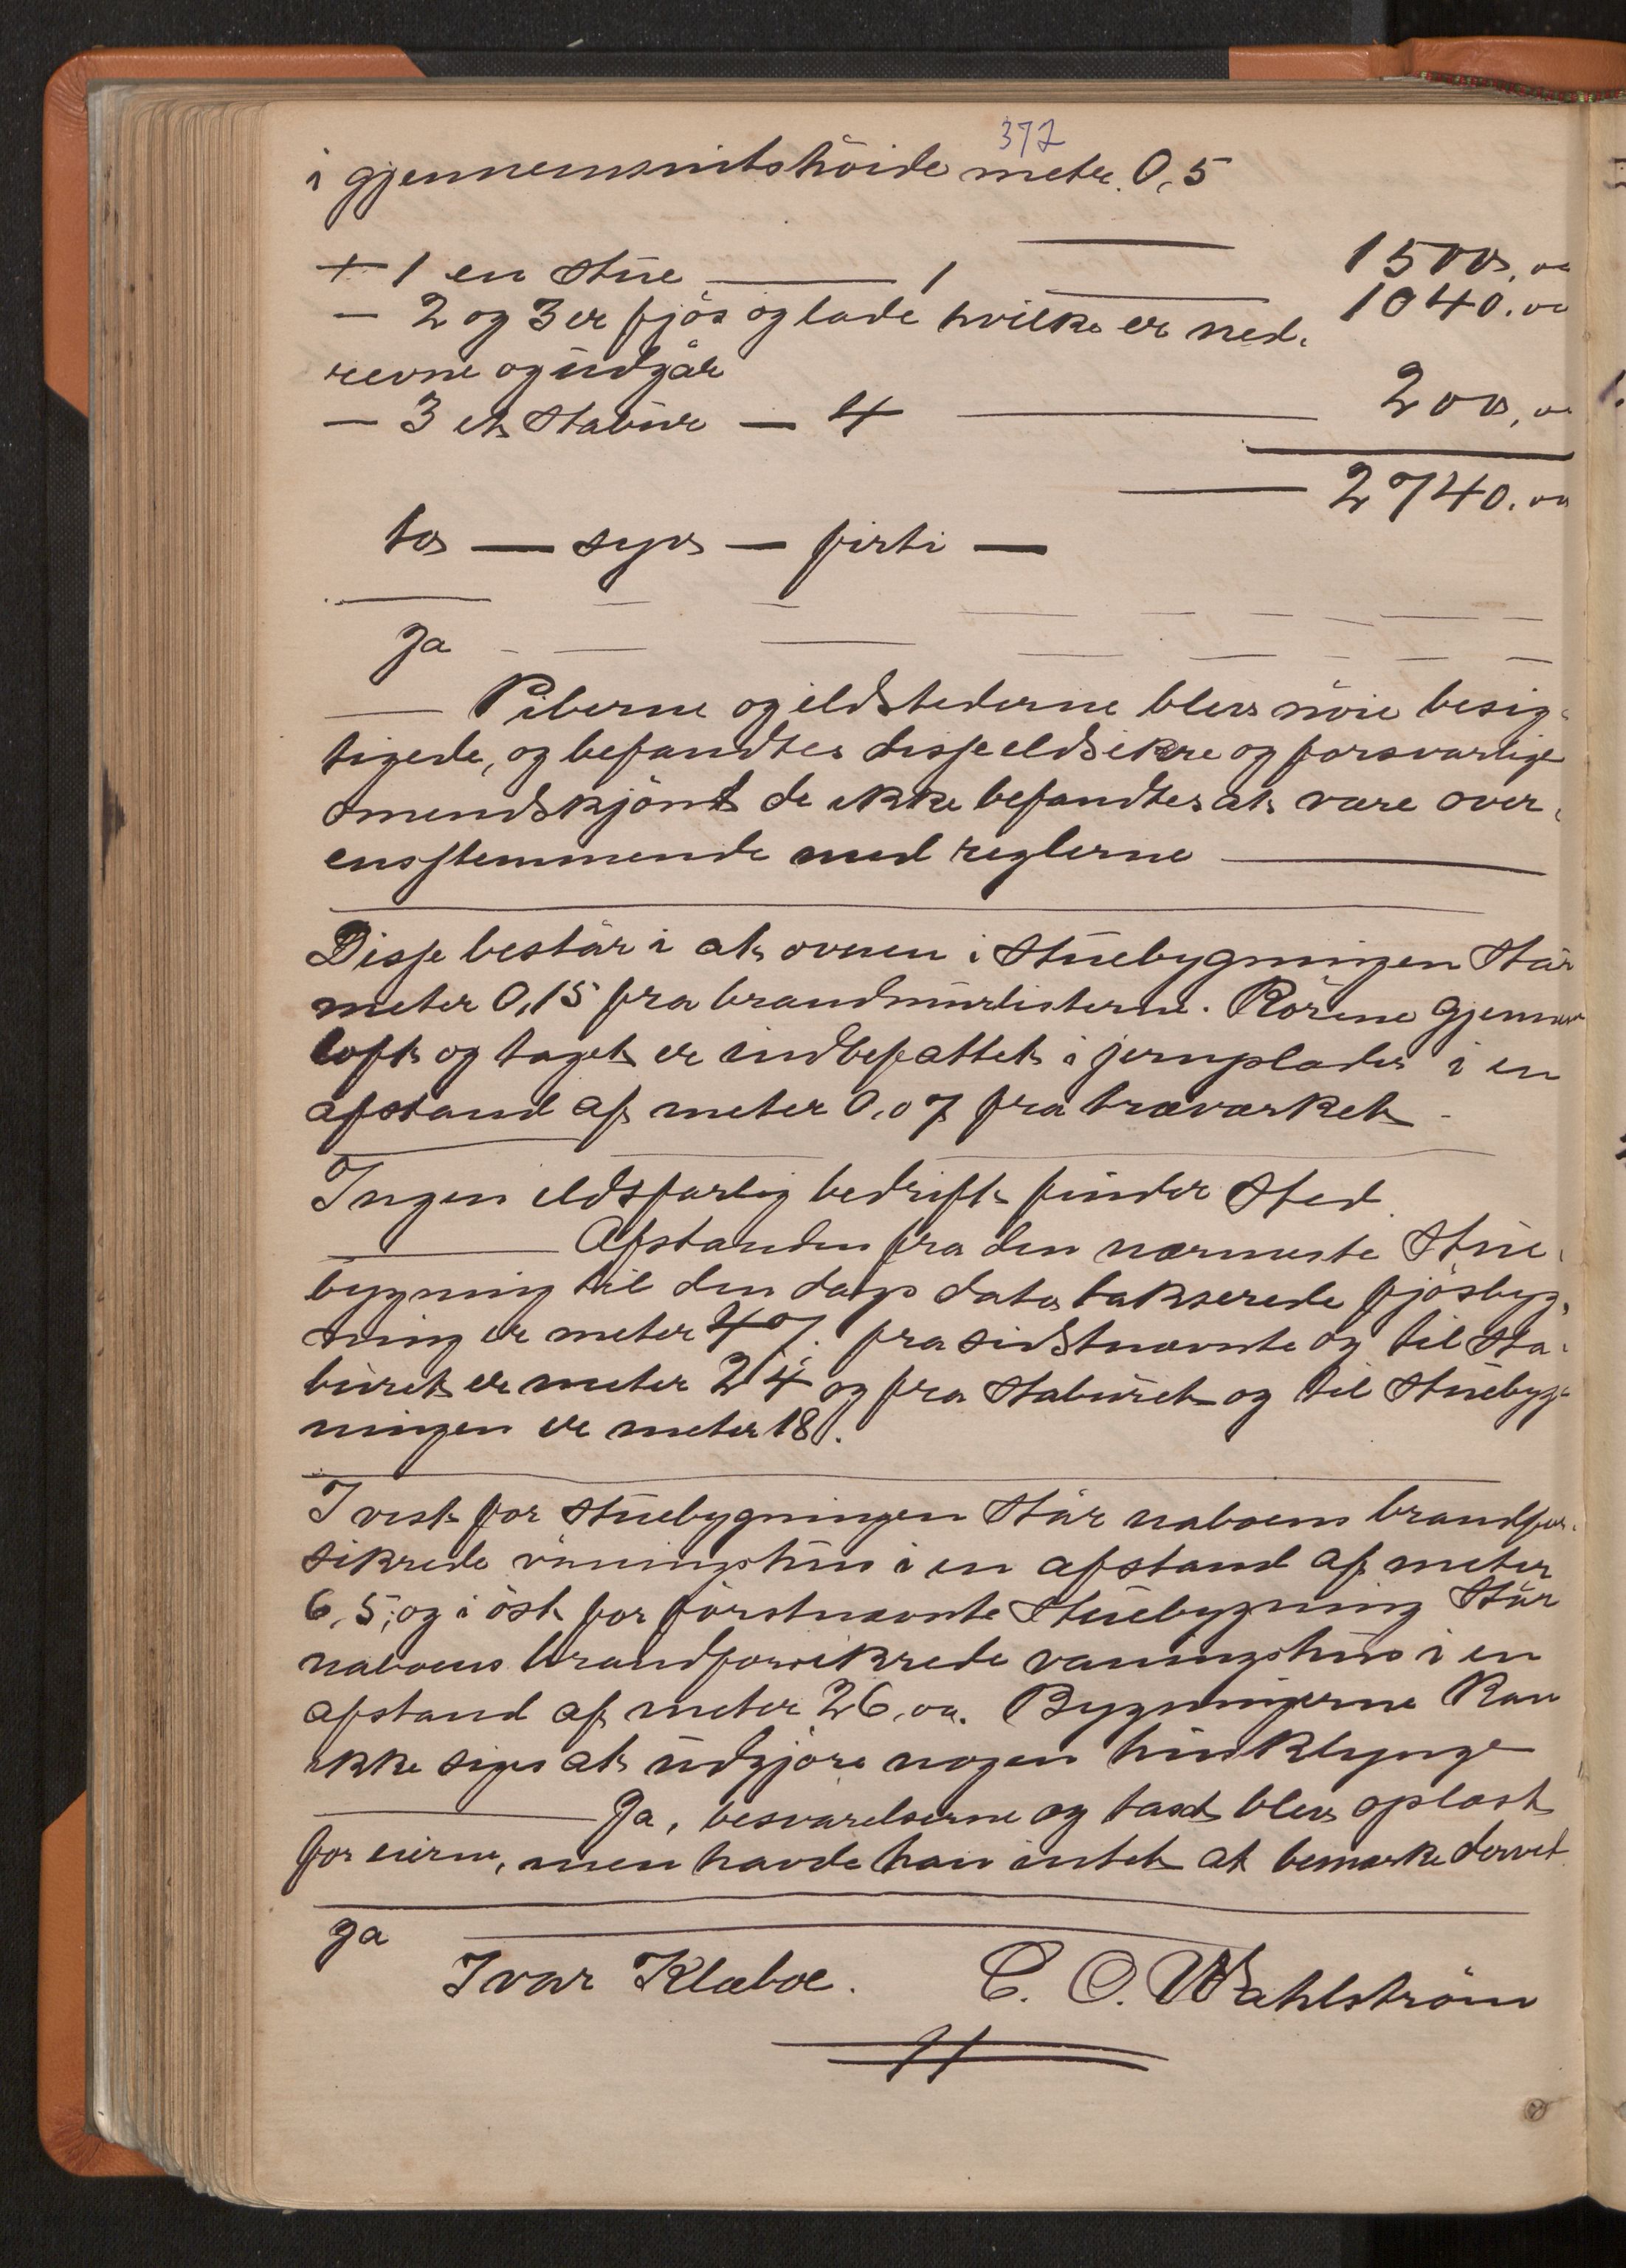 372
i gjennemsnitshöide meter. 0,5
+ 1 en Stue — 1 — 1500,00
— 2 og 3 er fjös og lade hvilke er ned- 1040.00
revne og udgår
— 3 et Stabur — 4 — 200,00
— 2740.00
to — syv — firti —
Ja
— Piberne og ildstederne blev nöie besig-
tigede, og befandtes disse ildsikre og forsvarlige
omendskjönt de ikke befandtes at være over-
ensstemmende med reglerne —
Disse består i at ovnen i Stuebygningen Står
meter 0,15 fra brandmurlisterne. Rörene gjennem
loft og taget er indbefattet i jernplader i en
afstand af meter 0,07 fra træværket
Ingen ildsfarlig bedrift finder Sted
— Afstanden fra den nærmeste Stue-
bygning til den dags dato takserede fjösbyg-
ning er meter 47. fra sidstnævnte og til Sta-
buret er meter 24 og fra Staburet og til Stuebyg-
ningen er meter 18.
I vest for Stuebygningen Står naboens brandfor-
sikrede våningshus i en afstand af meter
6,5, og i öst for förstnævnte Stuebygning Står
naboens brandforsikrede vaningshus i en
afstand af meter 26,00. Bygningerne Kan
ikke siges at udgjöre nogen husklynge
— Ja, besvarelserne og taxt blev oplæst
for eieren, men havde han intet at bemærke dervet
Ja
Ivar Klæboe. C. O. Wahlström